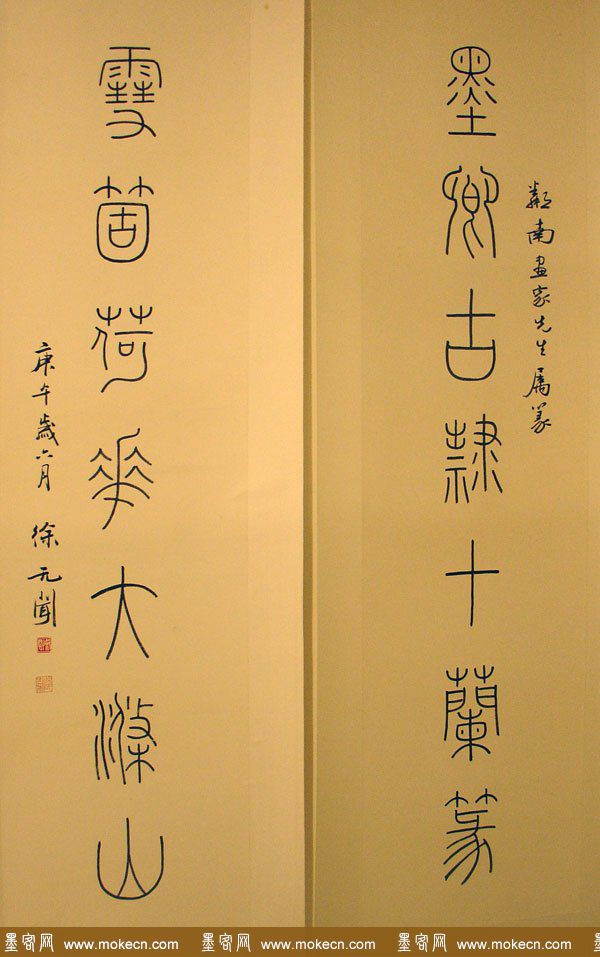 墨卿古隸十蘭篆
南畫家先生屬篆
雪箇荷華大滌山
庚午歲六月 徐无聞
墨客网 www.mokecn.com 墨客网 www.mokecn.com 墨客网 www.mokecn.com